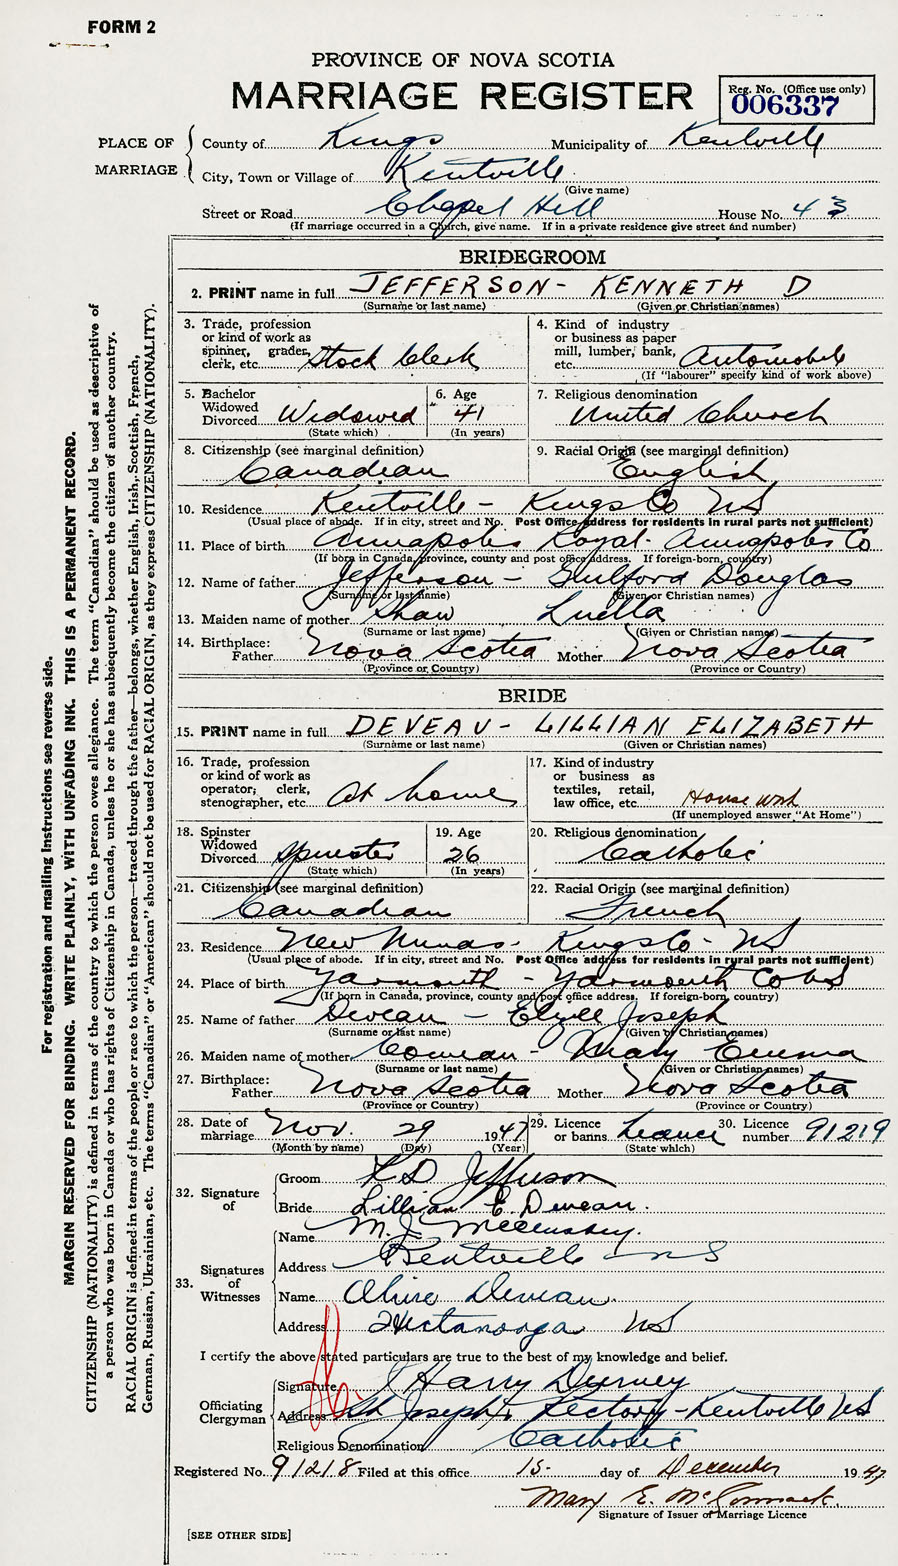 FORM 2
PROVINCE OF NOVA SCOTIA
MARRIAGE REGISTER
Reg. No. (Office use only)
006337
PLACE OF MARRIAGE
County of Kings Municipality of Kentville
City, Town or Village of Kentville
(Give name)
Street or Road Chapel Hill House No. 43
(If marriage occurred in a Church, give name. If in a private residence give street and number)
BRIDEGROOM
2. PRINT name in full JEFFERSON - KENNETH D
(Surname or last name) (Given or Christian names)
3. Trade, profession or kind of work as spinner, grader, clerk, etc. Stock Clerk
4. Kind of industry or business as paper mill, lumber, bank, etc. Automobile
(If "labourer" specify kind of work above)
5. Bachelor Widowed Divorced Widowed
(State which)
6. Age 41
(In years)
7. Religious denomination
United Church
8. Citizenship (see marginal definition)
Canadian
9. Racial Origin (see marginal definition)
English
10. Residence Kentville - Kings Co NS
(Usual place of abode. If in city, street and No. Post Office address for residents in rural parts not sufficient)
11. Place of birth Annapolis Royal - Annapolis Co
(If born in Canada, province, county and post office address. If foreign-born, country)
12. Name of father Jefferson - Guilford Douglas
(Surname or last name) (Given or Christian names)
13. Maiden name of mother Shaw Luella
(Surname or last name) (Given or Christian names)
14. Birthplace: Father Nova Scotia Mother Nova Scotia
(Province or Country) (Province or Country)
BRIDE
15. PRINT name in full DEVEAU - LILLIAN ELIZABETH
(Surname or last name) (Given or Christian names)
16. Trade, profession or kind of work as operator, clerk, stenographer, etc. At home
17. Kind of industry or business as textiles, retail, law office, etc. House work
(If unemployed answer "At Home")
18. Spinster Widowed Divorced Spinster
(State which)
19. Age 26
(In years)
20. Religious denomination
Catholic
21. Citizenship (see marginal definition)
Canadian
22. Racial Origin (see marginal definition)
French
23. Residence New Minas - Kings Co - NS
(Usual place of abode. If in city, street and No. Post Office address for residents in rural parts not sufficient)
24. Place of birth Yarmouth - Yarmouth Co NS
(If born in Canada, province, county and post office address. If foreign-born, country)
25. Name of father Deveau - Joseph
(Surname or last name) (Given or Christian names)
26. Maiden name of mother Comeau - Mary Emma
(Surname or last name) (Given or Christian names)
27. Birthplace: Father Nova Scotia Mother Nova Scotia
(Province or Country) (Province or Country)
28. Date of marriage Nov. 29 1947
(Month by name) (Day) (Year)
29. Licence or banns Licence
(State which)
30. Licence number 91219
32. Signature of
Groom K D Jefferson
Bride Lillian E. Deveau.
33. Signatures of Witnesses
Name M. J.
Address Kentville NS
Name Deveau
Address Hectanooga NS
I certify the above stated particulars are true to the best of my knowledge and belief.
Officiating Clergyman
Signature J Harry Durney
Address St Joseph's Rectory - Kentville NS
Religious Denomination Catholic
Registered No. 91218 Filed at this office 15 day of December 1947
Mary E. McCormack.
Signature of Issuer of Marriage Licence
[SEE OTHER SIDE]
For registration and mailing instructions see reverse side.
MARGIN RESERVED FOR BINDING. WRITE PLAINLY, WITH UNFADING INK. THIS IS A PERMANENT RECORD.
CITIZENSHIP (NATIONALITY) is defined in terms of the country to which the person owes allegiance. The term "Canadian" should be used as descriptive of
a person who was born in Canada or who has rights of Citizenship in Canada, unless he or she has subsequently become the citizen of another country.
RACIAL ORIGIN is defined in terms of the people or race to which the person—traced through the father—belongs, whether English, Irish, Scottish, French,
German, Russian, Ukrainian, etc. The terms "Canadian" or "American" should not be used for RACIAL ORIGIN, as they express CITIZENSHIP (NATIONALITY).